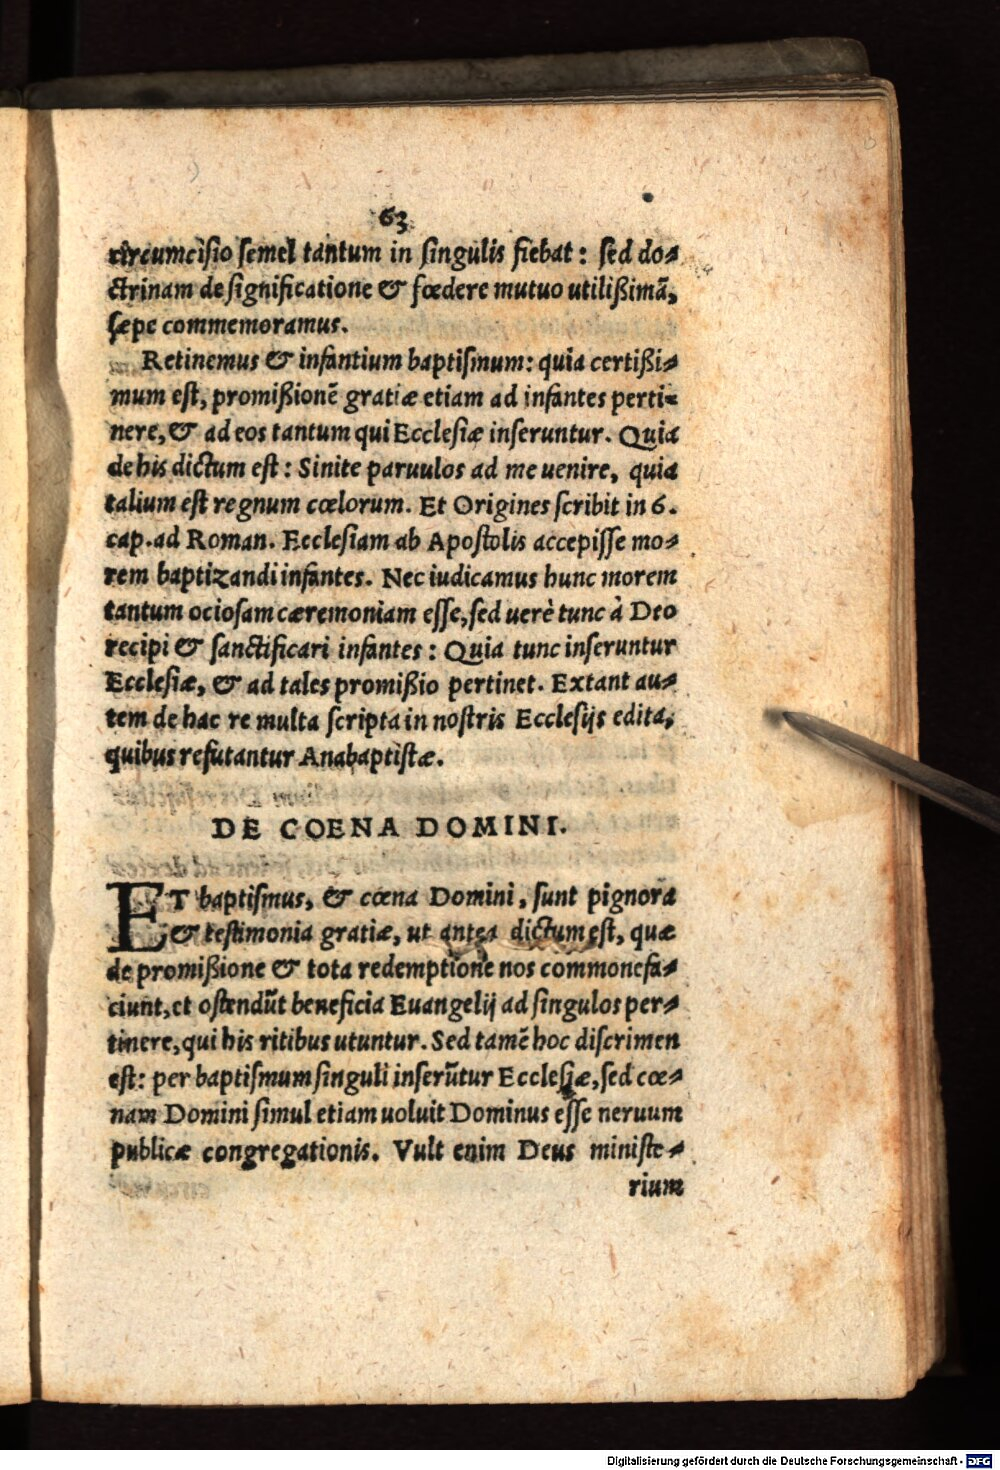 63
circumcisio semel tantum in singulis fiebat: sed do-
ctrinam de significatione & fœdere mutuo utilißimā,
sæpe commemoramus.
Retinemus & infantium baptismum: quia certißi-
mum est, promißionē gratiæ etiam ad infantes perti-
nere, & ad eos tantum qui Ecclesiæ inseruntur. Quia
de his dictum est: Sinite paruulos ad me uenire, quia
talium est regnum cœlorum. Et Origines scribit in 6.
cap. ad Roman. Ecclesiam ab Apostolis accepisse mo-
rem baptizandi infantes. Nec iudicamus hunc morem
tantum ociosam cæremoniam esse, sed uerè tunc à Deo
recipi & sanctificari infantes: Quia tunc inseruntur
Ecclesiæ, & ad tales promißio pertinet. Extant au-
tem de hac re multa scripta in nostris Ecclesijs edita,
quibus refutantur Anabaptistæ.
DE COENA DOMINI.
ET baptismus, & cœna Domini, sunt pignora
& testimonia gratiæ, ut antea dictum est, quæ
de promißione & tota redemptione nos commonefa-
ciunt, et ostendūt beneficia Euangelij ad singulos per-
tinere, qui his ritibus utuntur. Sed tamē hoc discrimen
est: per baptismum singuli inserūtur Ecclesiæ, sed cœ-
nam Domini simul etiam uoluit Dominus esse neruum
publicæ congregationis. Vult enim Deus ministe-
rium
Digitalisierung gefördert durch die Deutsche Forschungsgemeinschaft - DFG